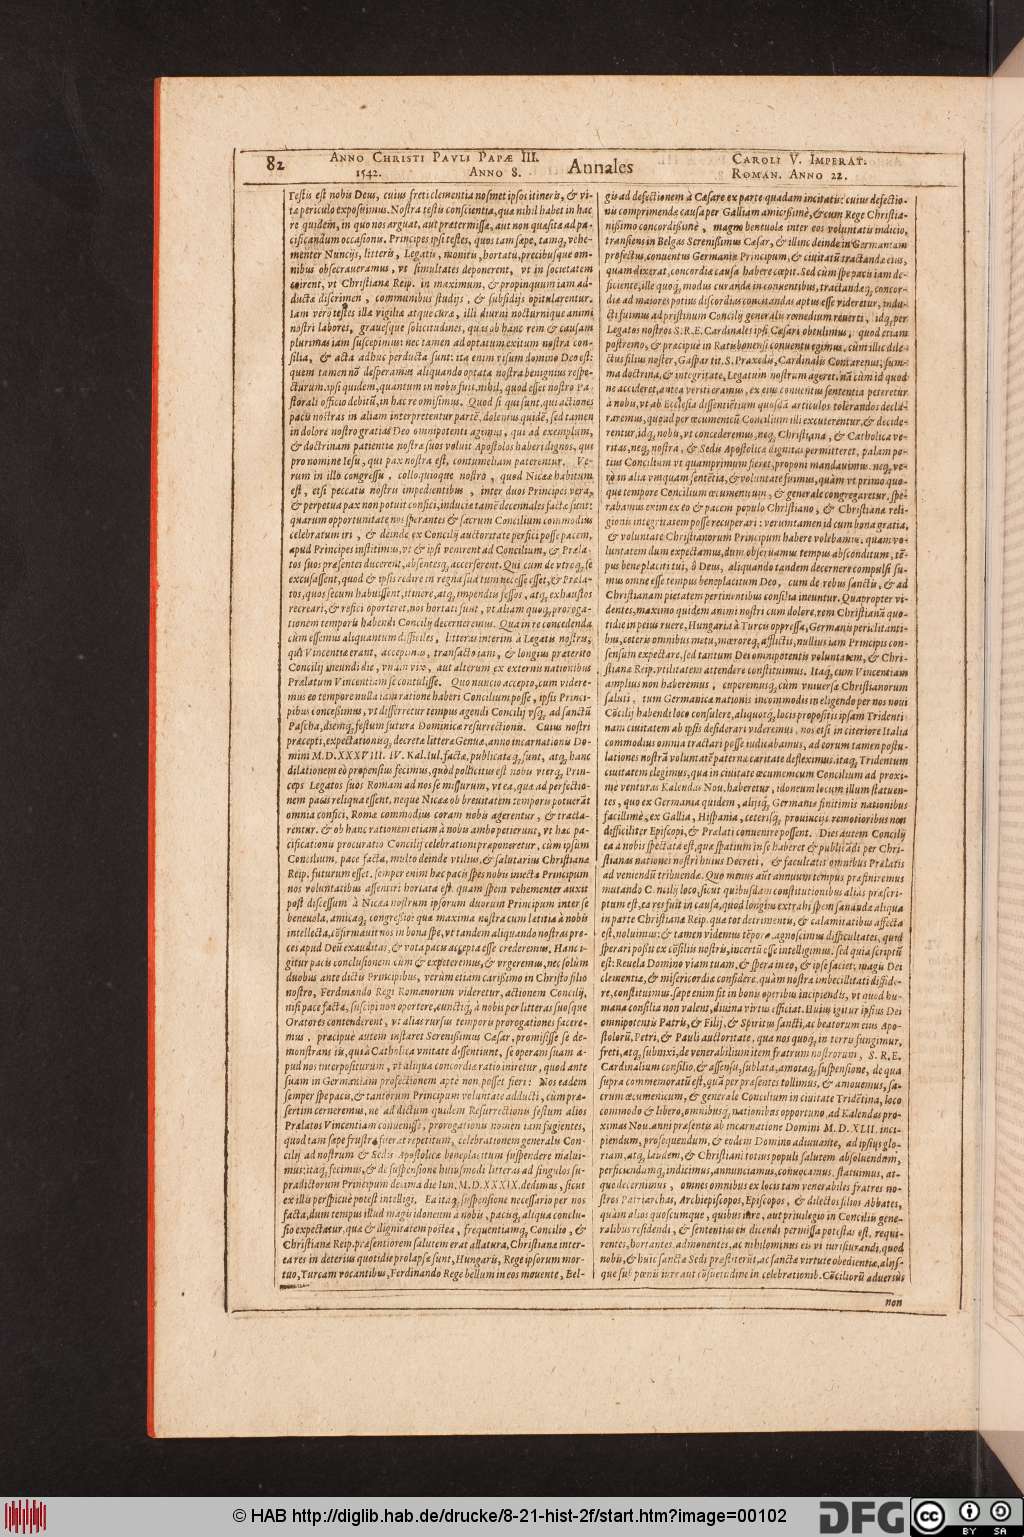 82
ANNO CHRISTI PAVLI PAPÆ III.
1542. ANNO 8.
Annales
CAROLI V. IMPERAT.
ROMAN. ANNO 22.
Testis est nobis Deus, cuius freti clementia nosmet ipsos itineris, & vi-
tæ periculo exposuimus. Nostra testis conscientia, quæ nihil habet in hac
re quidem, in quo nos arguat, aut prætermissæ, aut non quæsitæ ad pa-
cificandum occasionis. Principes ipsi testes, quos tam sæpe, tamq́, vehe-
menter Nuncijs, litteris, Legatis, monitis, hortatu, precibusque om-
nibus obsecraueramus, vt simultates deponerent, vt in societatem
coirent, vt Christianæ Reip. in maximum, & propinquum iam ad-
ductæ discrimen, communibus studijs, & subsidijs opitularentur.
Iam verò testes illæ vigiliæ atque curæ, illi diurni nocturnique animi
nostri labores, grauesque solicitudines, quas ob hanc rem & causam
plurimas iam suscepimus: nec tamen ad optatum exitum nostra con-
silia, & acta adhuc perducta sunt: ita enim visum domino Deo est:
quem tamen nō desperamus aliquando optata nostra benignius respe-
cturum. ipsi quidem, quantum in nobis fuit, nihil, quod esset nostro Pa-
storali officio debitū, in hac re omisimus. Quod si qui sunt, qui actiones
pacis nostras in aliam interpretentur partē, dolemus quidē, sed tamen
in dolore nostro gratias Deo omnipotenti agimus, qui ad exemplum,
& doctrinam patientiæ nostræ suos voluit Apostolos haberi dignos, qui
pro nomine Iesu, qui pax nostra est, contumeliam paterentur. Ve-
rum in illo congressu, colloquioque nostro, quod Nicææ habitum
est, etsi peccatis nostris impedientibus, inter duos Principes vera,
& perpetua pax non potuit confici, induciæ tamē decennales factæ sunt:
quarum opportunitate nos sperantes & sacrum Concilium commodius
celebratum iri, & deinde ex Concilij auctoritate perfici posse pacem,
apud Principes institimus, vt & ipsi venirent ad Concilium, & Præla-
tos suos præsentes ducerent, absentesq́, accerserent. Qui cum de vtroq́, se
excusassent, quod & ipsis redire in regna sua tum necesse esset, & Præla-
tos, quos secum habuissent, itinere, atq́, impendiis fessos, atq́, exhaustos
recreari, & refici oporteret, nos hortati sunt, vt aliam quoq́, proroga-
tionem temporis habendi Concilij decerneremus. Qua in re concedenda
cùm essemus aliquantum difficiles, litteras interim à Legatis nostris,
qui Vincentiæ erant, accepimus, transacto iam, & longius præterito
Concilij ineundi die, vnum vix, aut alterum ex externis nationibus
Prælatum Vincentiam se contulisse. Quo nuncio accepto, cum videre-
mus eo tempore nulla iam ratione haberi Concilium posse, ipsis Princi-
pibus concessimus, vt differretur tempus agendi Concilij vsq́, ad sanctū
Pascha, diemq́, festum futura Dominicæ resurrectionis. Cuius nostri
præcepti, expectationisq́, decretæ litteræ Genuæ, anno incarnationis Do-
mini M.D.XXXVIII. IV. Kal. Iul. factæ, publicataq́, sunt, atq́, hanc
dilationem eò propensius fecimus, quòd pollicitus est nobis vterq́, Prin-
ceps Legatos suos Romam ad nos se missurum, vt ea, quæ ad perfectio-
nem pacis reliqua essent, neque Nicææ ob breuitatem temporis potuerāt
omnia confici, Romæ commodius coram nobis agerentur, & tracta-
rentur. & ob hanc rationem etiam à nobis ambo petierunt, vt hæc pa-
cificationis procuratio Concilij celebrationi præponeretur, cùm ipsum
Concilium, pace facta, multo deinde vtilius, & salutarius Christianæ
Reip. futurum esset. semper enim hæc pacis spes nobis iniecta Principum
nos voluntatibus assentiri hortata est. quam spem vehementer auxit
post discessum à Nicæa nostrum ipsorum duorum Principum inter se
beneuola, amicaq́, congressio: quæ maxima nostra cum lætitia à nobis
intellecta, cōfirmauit nos in bona spe, vt tandem aliquando nostras pre-
ces apud Deū exauditas, & vota pacis accepta esse crederemus. Hanc i-
gitur pacis conclusionem cùm & expeteremus, & vrgeremus, nec solùm
duobus ante dictis Principibus, verùm etiam carissimo in Christo filio
nostro, Ferdinando Regi Romanorum videretur, actionem Concilij,
nisi pace facta, suscipi non oportere, cunctiq́, à nobis per litteras suosque
Oratores contenderent, vt alias rursus temporis prorogationes facere-
mus, præcipuè autem instaret Serenissimus Cæsar, promisisse se de-
monstrans iis, qui à Catholica vnitate dissentiunt, se operam suam a-
pud nos interpositurum, vt aliqua concordiæ ratio iniretur, quod ante
suam in Germaniam profectionem aptè non posset fieri: Nos eadem
semper spe pacis, & tantorum Principum voluntate adducti, cùm præ-
sertim cerneremus, ne ad dictum quidem Resurrectionis festum alios
Prælatos Vincentiam conuenisse, prorogationis nomen iam fugientes,
quod tam sæpe frustra fuerat repetitum, celebrationem generalis Con-
cilij ad nostrum & Sedis Apostolicæ beneplacitum suspendere malui-
mus: itaq́, fecimus, & de suspensione huiusmodi litteras ad singulos su-
pradictorum Principum decima die Iun. M.D.XXXIX. dedimus, sicut
ex illis perspicuè potest intelligi. Ea itaq́, suspensione necessariò per nos
facta, dum tempus illud magis idoneum à nobis, pacisq́, aliqua conclu-
sio expectatur, quæ & dignitatem postea, frequentiamq́, Concilio, &
Christianæ Reip. præsentiorem salutem erat allatura, Christianæ inter-
ea res in deterius quotidie prolapsæ sunt, Hungaris, Rege ipsorum mor-
tuo, Turcam vocantibus, Ferdinando Rege bellum in eos mouente, Bel-
gis ad defectionem à Cæsare ex parte quadam incitatis: cuius defectio-
nis comprimendæ causa per Galliam amicissimè, & cum Rege Christia-
nissimo concordissimè, magno beneuolæ inter eos voluntatis indicio,
transiens in Belgas Serenissimus Cæsar, & illinc deinde in Germaniam
profectus, conuentus Germaniæ Principum, & ciuitatū tractandæ eius,
quam dixerat, concordiæ causa habere cœpit. Sed cùm spe pacis iam de-
ficiente, ille quoq́, modus curandæ in conuentibus, tractandæq́, concor-
diæ ad maiores potius discordias concitandas aptus esse videretur, indu-
cti fuimus ad pristinum Concilij generalis remedium reuerti, idq́, per
Legatos nostros S.R.E. Cardinales ipsi Cæsari obtulimus, quod etiam
postremo, & præcipuè in Ratisbonensi conuentu egimus, cùm illic dile-
ctus filius noster, Gaspar tit. S. Praxedis, Cardinalis Contarenus, sum-
ma doctrina, & integritate, Legatum nostrum ageret. nā cùm id quod
ne accideret, antea veriti eramus, ex eius conuentus sententia peteretur
à nobis, vt ab Ecclesia dissentiētium quosdā articulos tolerandos decla-
raremus, quoad per œcumenicū Concilium illi excuterentur, & decide-
rentur, idq́, nobis, vt concederemus, neq́, Christiana, & Catholica ve-
ritas, neq́, nostra, & Sedis Apostolicæ dignitas permitteret, palam po-
tius Concilium vt quamprimum fieret, proponi mandauimus. neq́, ve-
rò in alia vmquam sentētia, & voluntate fuimus, quàm vt primo quo-
que tempore Concilium œcumenicum, & generale congregaretur. spe-
rabamus enim ex eo & pacem populo Christiano, & Christianæ reli-
gionis integritatem posse recuperari: verumtamen id cum bona gratia,
& voluntate Christianorum Principum habere volebamus. quam vo-
luntatem dum expectamus, dum obseruamus tempus absconditum, tē-
pus beneplaciti tui, ô Deus, aliquando tandem decernere compulsi su-
mus omne esse tempus beneplacitum Deo, cum de rebus sanctis, & ad
Christianam pietatem pertinentibus consilia ineuntur. Quapropter vi-
dentes, maximo quidem animi nostri cum dolore, rem Christianā quo-
tidie in peius ruere, Hungaria à Turcis oppressa, Germanis periclitanti-
bus, ceteris omnibus metu, mœroreq́, afflictis, nullius iam Principis con-
sensum expectare, sed tantum Dei omnipotentis voluntatem, & Chri-
stianæ Reip. vtilitatem attendere constituimus. Itaq́, cum Vincentiam
amplius non haberemus, cuperemusq́, cùm vniuersæ Christianorum
saluti, tum Germanicæ nationis incommodis in eligendo per nos noui
Cōcilij habendi loco consulere, aliquotq́, locis propositis ipsam Tridenti-
nam ciuitatem ab ipsis desiderari videremus, nos etsi in citeriore Italia
commodius omnia tractari posse iudicabamus, ad eorum tamen postu-
lationes nostrā voluntatē paterna caritate deflexímus. itaq́, Tridentum
ciuitatem elegimus, qua in ciuitate œcumenicum Concilium ad proxi-
mè venturas Kalendas Nou. haberetur, idoneum locum illum statuen-
tes, quo ex Germania quidem, alijsq́, Germaniæ finitimis nationibus
facillimè, ex Gallia, Hispania, ceterisq́, prouinciis remotioribus non
difficiliter Episcopi, & Prælati conuenire possent. Dies autem Concilij
ea à nobis spectata est, quæ spatium in se haberet & publicādi per Chri-
stianas nationes nostri huius Decreti, & facultatis omnibus Prælatis
ad veniendū tribuendæ. Quo minus aūt annuum tempus præfiniremus
mutando Concilij loco, sicut quibusdam constitutionibus alias præscri-
ptum est, ea res fuit in causa, quod longius extrahi spem sanandæ aliqua
in parte Christianæ Reip. quæ tot detrimentis, & calamitatibus affecta
est, noluimus: & tamen videmus tēpora, agnoscimus difficultates, quid
sperari possit ex cōsiliis nostris, incertū esse intelligimus. sed quia scriptū
est: Reuela Domino viam tuam, & spera in eo, & ipse faciet; magis Dei
clementiæ, & misericordiæ confidere, quàm nostræ imbecillitati diffide-
re, constituimus. sæpe enim fit in bonis operibus incipiendis, vt quod hu-
mana consilia non valent, diuina virtus efficiat. Huius igitur ipsius Dei
omnipotentis Patris, & Filij, & Spiritus sancti, ac beatorum eius Apo-
stolorū, Petri, & Pauli auctoritate, qua nos quoq́, in terris fungimur,
freti, atq́, subnixi, de venerabilium item fratrum nostrorum, S.R.E.
Cardinalium consilio, & assensu, sublata, amotaq́, suspensione, de qua
supra commemoratū est, quā per præsentes tollimus, & amouemus, sa-
crum œcumenicum, & generale Concilium in ciuitate Tridētina, loco
commodo & libero, omnibusq́, nationibus opportuno, ad Kalendas pro-
ximas Nou. anni præsentis ab incarnatione Domini M.D.XLII. inci-
piendum, prosequendum, & eodem Domino adiuuante, ad ipsius glo-
riam, atq́, laudem, & Christiani totius populi salutem absoluendum,
perficiendumq́, indicimus, annunciamus, conuocamus, statuimus, at-
que decernimus, omnes omnibus ex locis tam venerabiles fratres no-
stros Patriarchas, Archiepiscopos, Episcopos, & dilectos filios Abbates,
quàm alios quoscumque, quibus iure, aut priuilegio in Conciliis gene-
ralibus residendi, & sententias in eis dicendi permissa potestas est, requi-
rentes, hortantes, admonentes, ac nihilominus eis vi iurisiurandi, quod
nobis, & huic sanctæ Sedi præstiterūt, ac sanctæ virtute obedientiæ, aliis-
que sub pœnis iure aut cōsuetudine in celebrationib. Cōciliorū aduersùs
non
© HAB http://diglib.hab.de/drucke/8-21-hist-2f/start.htm?image=00102
DFG
cc
BY SA